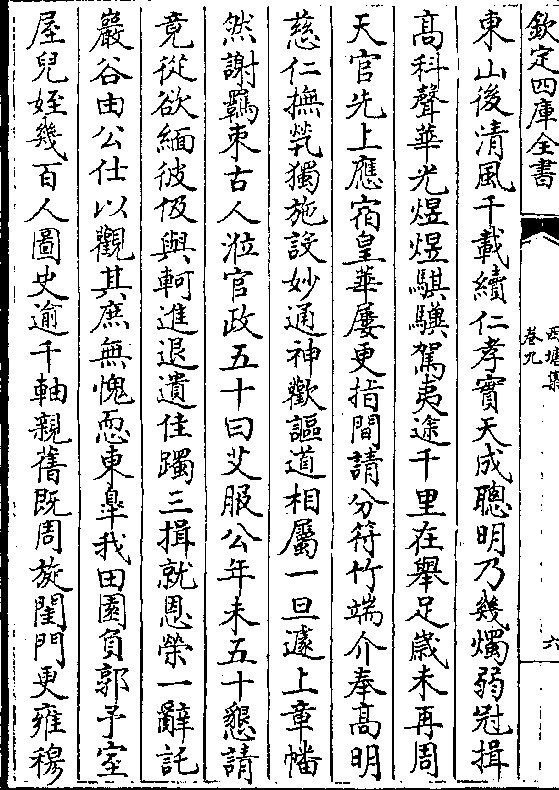 欽定四庫全書
卷九
六
東山後清風千載續仁孝實天成聰明乃幾燭弱冠揖
髙科聲華光煜煜騏驥駕夷途千里在舉足歲未再周
天官先上應宿皇華屢更指間請分符竹端介奉髙明
慈仁撫㷀獨施設妙通神歡謳道相屬一旦遽上章幡
然謝羈束古人涖官政五十曰艾服公年未五十懇請
竟從欲緬彼伋與軻進退遺佳躅三揖就恩榮一辭託
巖谷由公仕以觀其庶無愧恧東臯我田園負郭予室
屋兒姪幾百人圖史逾千軸親舊既周旋閨門更雍穆